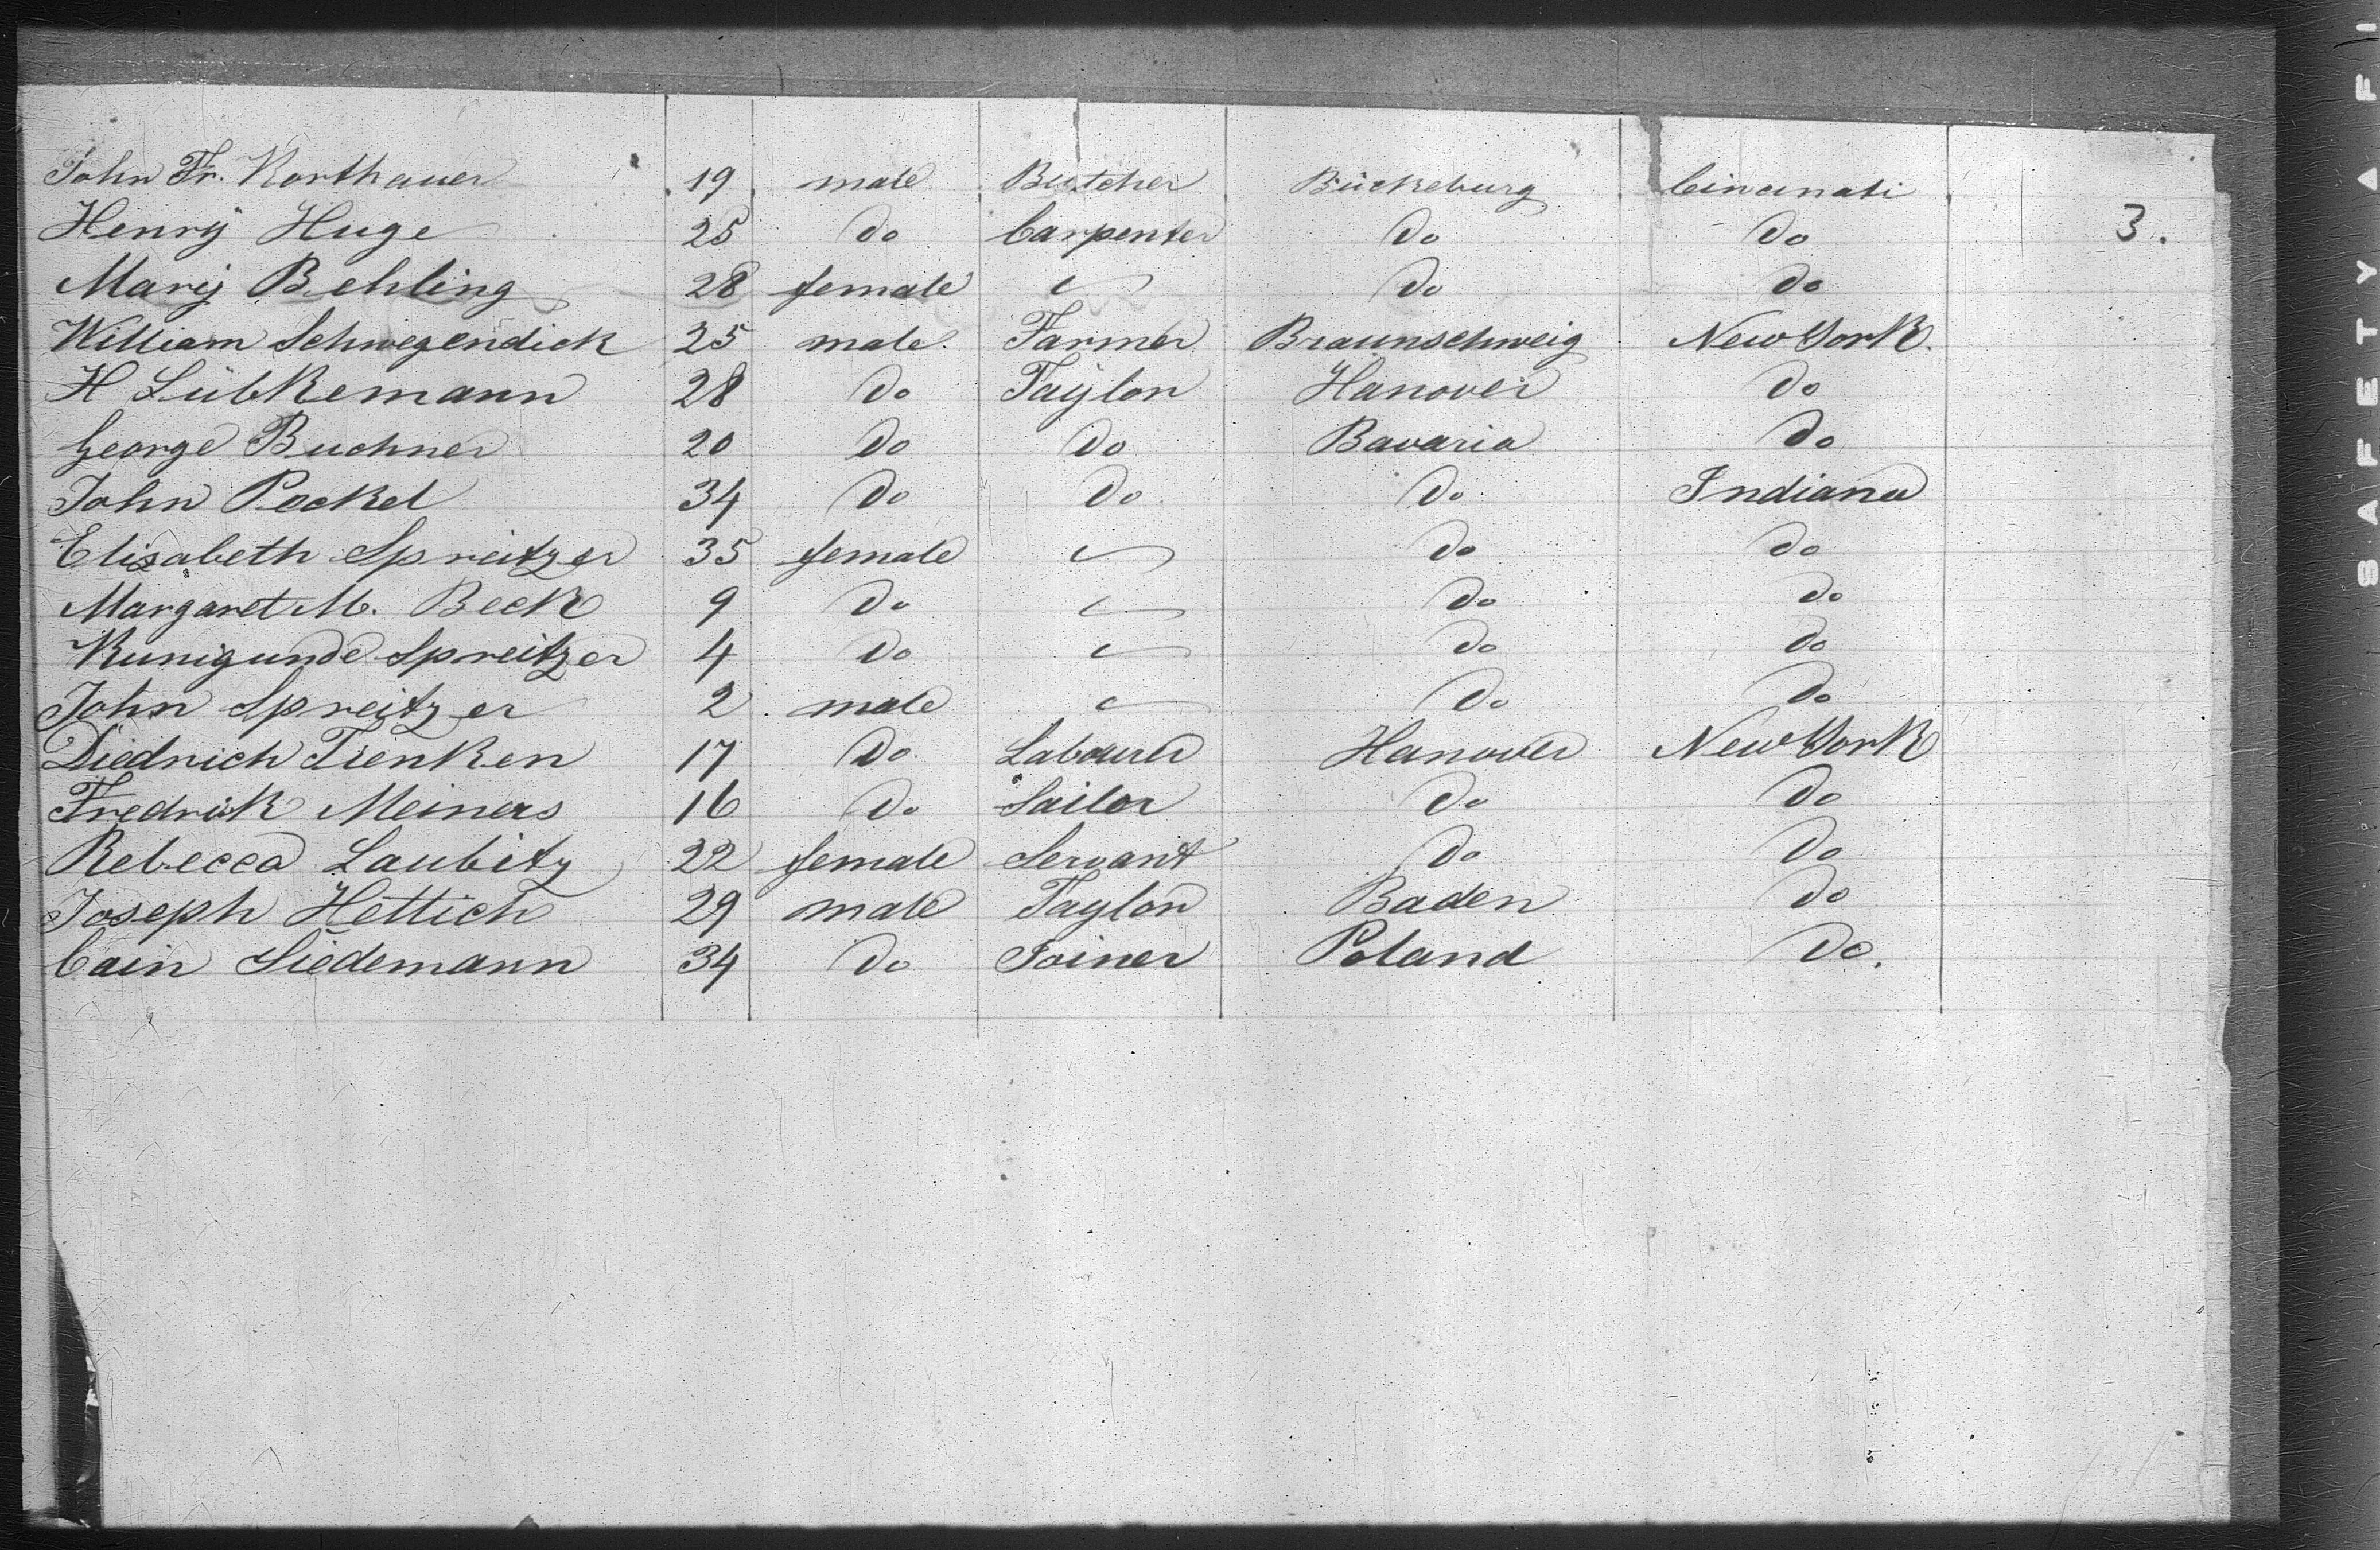 John Fr. Korthauer 19 male Butcher Bückeburg Cincinati
Henry Huge 25 do Carpenter do do 3.
Mary Behling 28 female do do
William Schwegendick 25 male Farmer Braunschweig New York.
H Lübkemann 28 do Taylor Hanover do
George Buchner 20 do do Bavaria do
John Peckel 34 do do do Indiana
Elisabeth Spreitzer 35 female do do
Margaret M. Beck 9 do do do
Kunigunde Spreitzer 4 do do do
John Spreitzer 2 male do do
Diedrich Tienken 17 do Labourer Hanover New York
Fredrik Meiners 16 do Sailor do do
Rebecca Laubitz 22 female Servant do do
Joseph Hettich 29 male Taylor Baden do
Cain Liedemann 34 do Joiner Poland do.
SAFETY